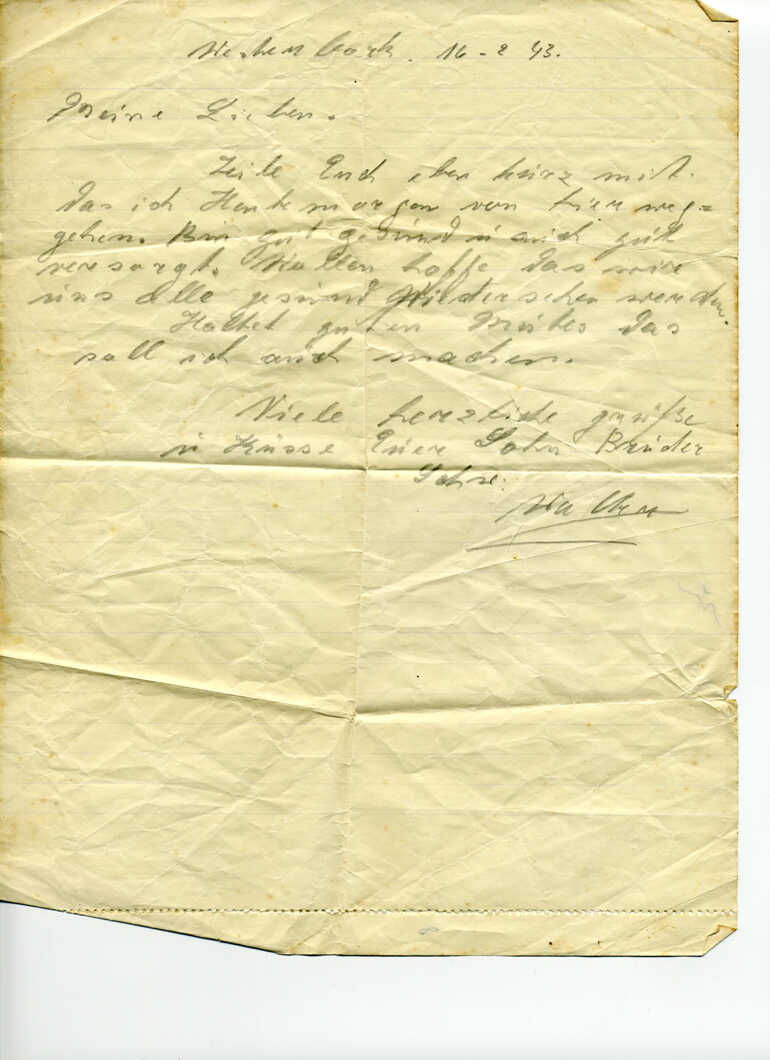 Westerbork. 16-2 43.
Meine Lieben.
Teile Euch eben kurz mit.
das ich Heute morgen von hier weg=
gehen. Bin gut gesund u auch gut
versorgt. Wollen hoffe das wir
uns alle gesund Wiedersehen werden.
Haltet guten Mutes das
soll ich auch machen.
Viele herzliche grüße
u Küsse Euer Sohn Bruder